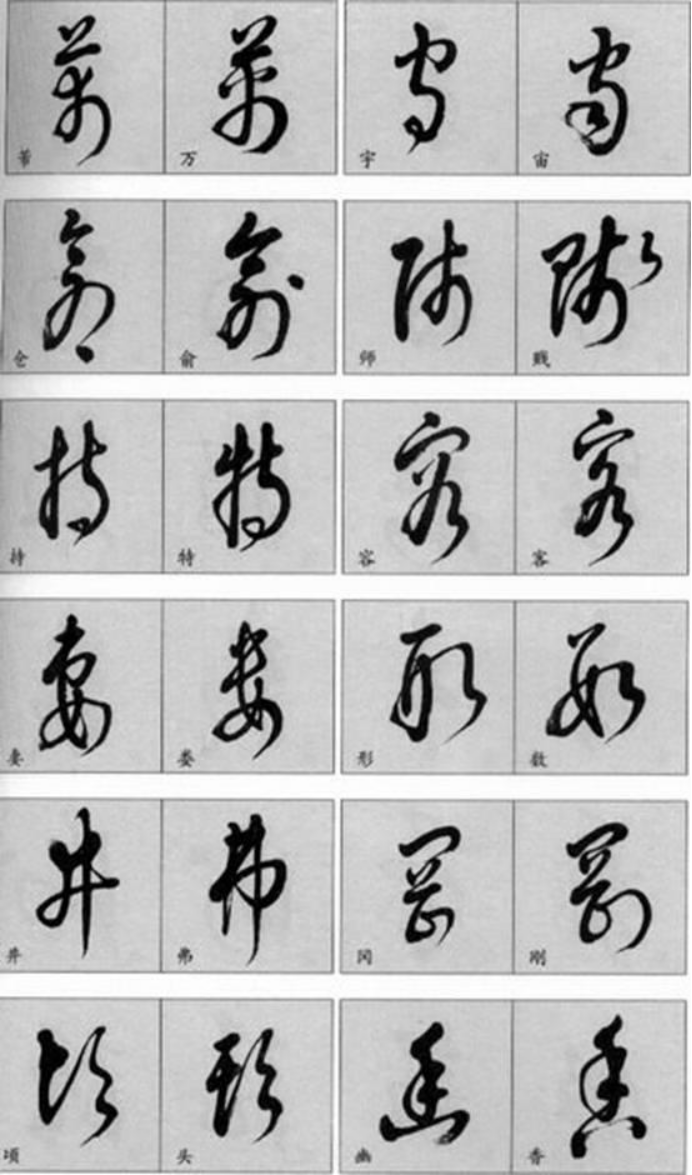 万 宇 宙
仓 俞 师 贱
持 特 容 客
妻 娄 形 数
井 弗 冈 刚
项 头 幽 香